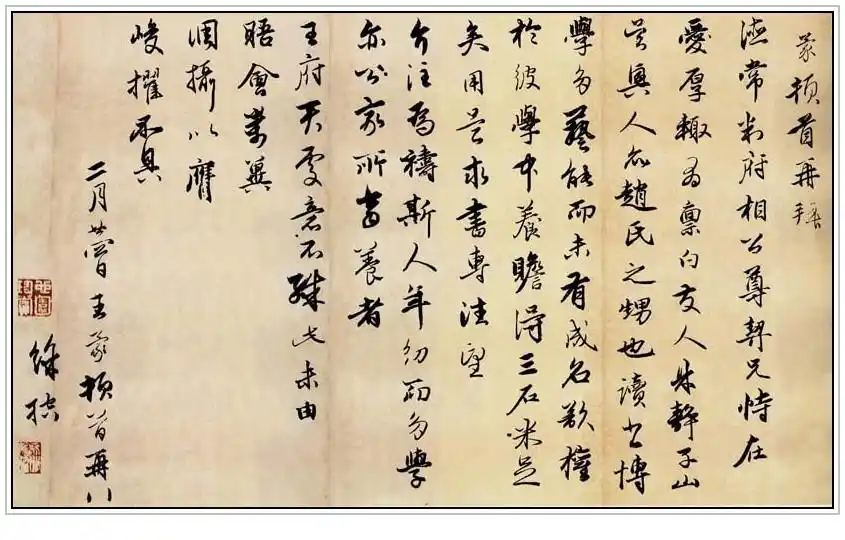 蒙頓首再拜
德常判府相公尊契兄恃在
愛厚輒為稟白友人靜子山
吳興人亦趙氏之甥也讀書博
學多藝能而未有成名欲權
於彼學中養贍得三石米足
矣用是求書專注望
介注為禱斯人年幼而多學
亦公家所當養者
王府天處意不殊此未由
晤會萬冀
調攝以膺
峻擢不具
二月廿日王蒙頓首再